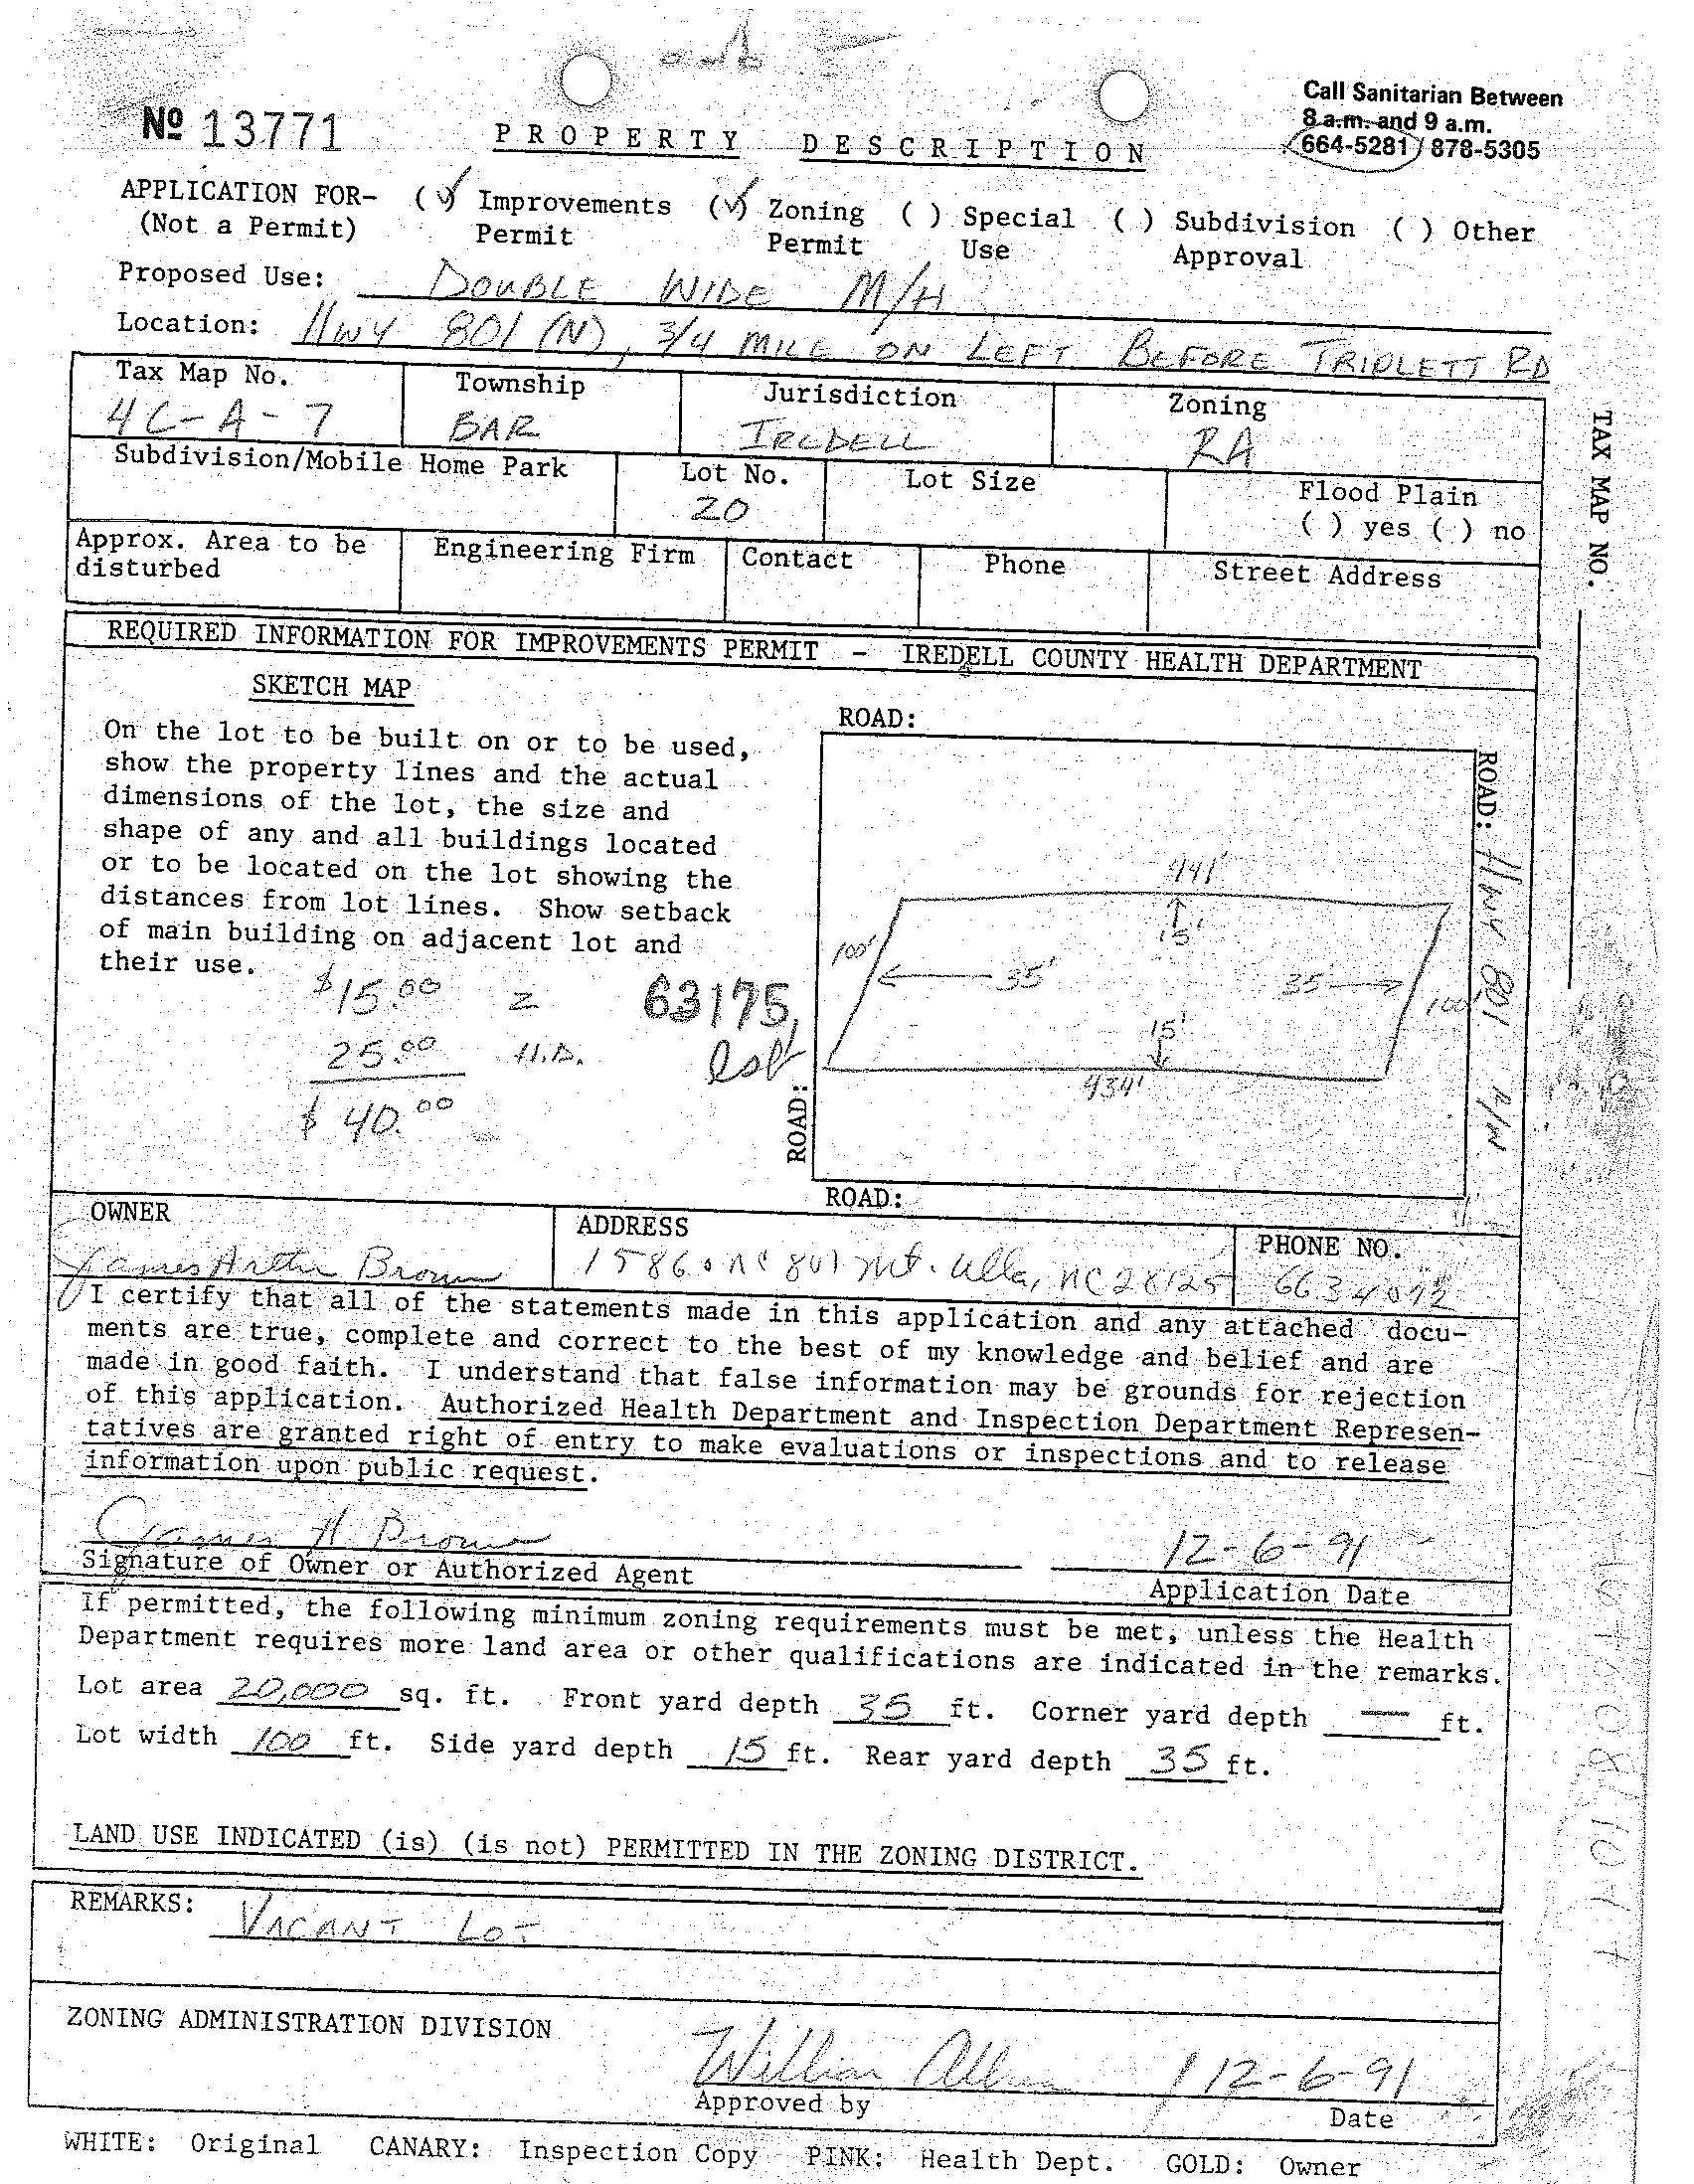 Call Sanitarian Between
8 a.m. and 9 a.m.
664-5281 / 878-5305
Nº 13771
PROPERTY DESCRIPTION
APPLICATION FOR- (✓) Improvements (✓) Zoning ( ) Special ( ) Subdivision ( ) Other
(Not a Permit) Permit Permit Use Approval
Proposed Use: DOUBLE WIDE M/H
Location: HWY 801 (N), 3/4 MILE ON LEFT BEFORE TRIPLETT RD
Tax Map No. Township Jurisdiction Zoning
4C-A-7 BAR IREDELL RA
Subdivision/Mobile Home Park Lot No. Lot Size Flood Plain
20 ( ) yes ( ) no
Approx. Area to be Engineering Firm Contact Phone Street Address
disturbed
TAX MAP NO.
REQUIRED INFORMATION FOR IMPROVEMENTS PERMIT - IREDELL COUNTY HEALTH DEPARTMENT
SKETCH MAP
On the lot to be built on or to be used,
show the property lines and the actual
dimensions of the lot, the size and
shape of any and all buildings located
or to be located on the lot showing the
distances from lot lines. Show setback
of main building on adjacent lot and
their use.
$15.00 Z 63175
25.00 H.D.
$ 40.00
ROAD:
441'
15'
100' 35' 35 100'
15'
434'
ROAD: HWY 801
ROAD:
ROAD:
OWNER ADDRESS PHONE NO.
James Arthur Brown 15860 NC 801 Mt. Ulla, NC 28125 6634092
I certify that all of the statements made in this application and any attached docu-
ments are true, complete and correct to the best of my knowledge and belief and are
made in good faith. I understand that false information may be grounds for rejection
of this application. Authorized Health Department and Inspection Department Represen-
tatives are granted right of entry to make evaluations or inspections and to release
information upon public request.
James A Brown 12-6-91
Signature of Owner or Authorized Agent Application Date
If permitted, the following minimum zoning requirements must be met, unless the Health
Department requires more land area or other qualifications are indicated in the remarks.
Lot area 20,000 sq. ft. Front yard depth 35 ft. Corner yard depth — ft.
Lot width 100 ft. Side yard depth 15 ft. Rear yard depth 35 ft.
LAND USE INDICATED (is) (is not) PERMITTED IN THE ZONING DISTRICT.
REMARKS: VACANT LOT
ZONING ADMINISTRATION DIVISION
William 12-6-91
Approved by Date
WHITE: Original CANARY: Inspection Copy PINK: Health Dept. GOLD: Owner